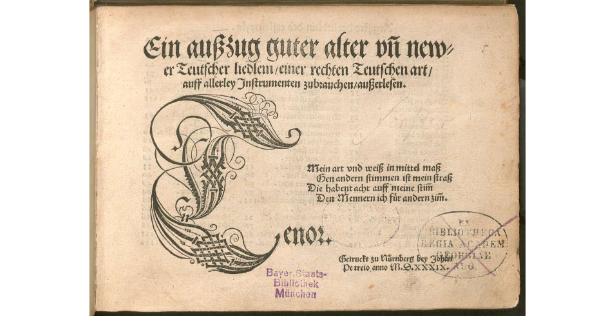 Ein außzug guter alter vñ new-
er Teutscher liedlein/einer rechten Teutschen art/
auff allerley Instrumenten zubrauchen/außerlesen.
Mein art vnd weiß in mittel maß
Gen andern stimmen ist mein straß
Die habent acht auff meine stim̃
Den Mennern ich für andern zim̃.
Tenor.
Getruckt zu Nürnberg bey Johan
Petreio, anno M.D.XXXIX.
BIBLIOTHECA
REGIA ACADEM.
GEORGIAE
AUG.
Bayer.Staats-
Bibliothek
München